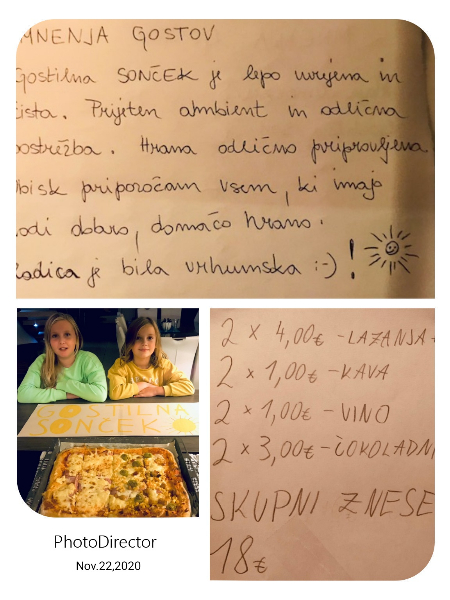 MNENJA GOSTOV
Gostilna SONČEK je lepo urejena in
čista. Prijeten ambient in odlična
postrežba. Hrana odlično pripravljena
Obisk priporočam vsem, ki imajo
radi dobro, domačo hrano.
Sladica je bila vrhunska :-)!
GOSTILNA
SONČEK
2 x 4,00€ - LAZANJA
2 x 1,00€ - KAVA
2 x 1,00€ - VINO
2 x 3,00€ - ČOKOLADNI
SKUPNI ZNESE
18€
PhotoDirector
Nov.22,2020